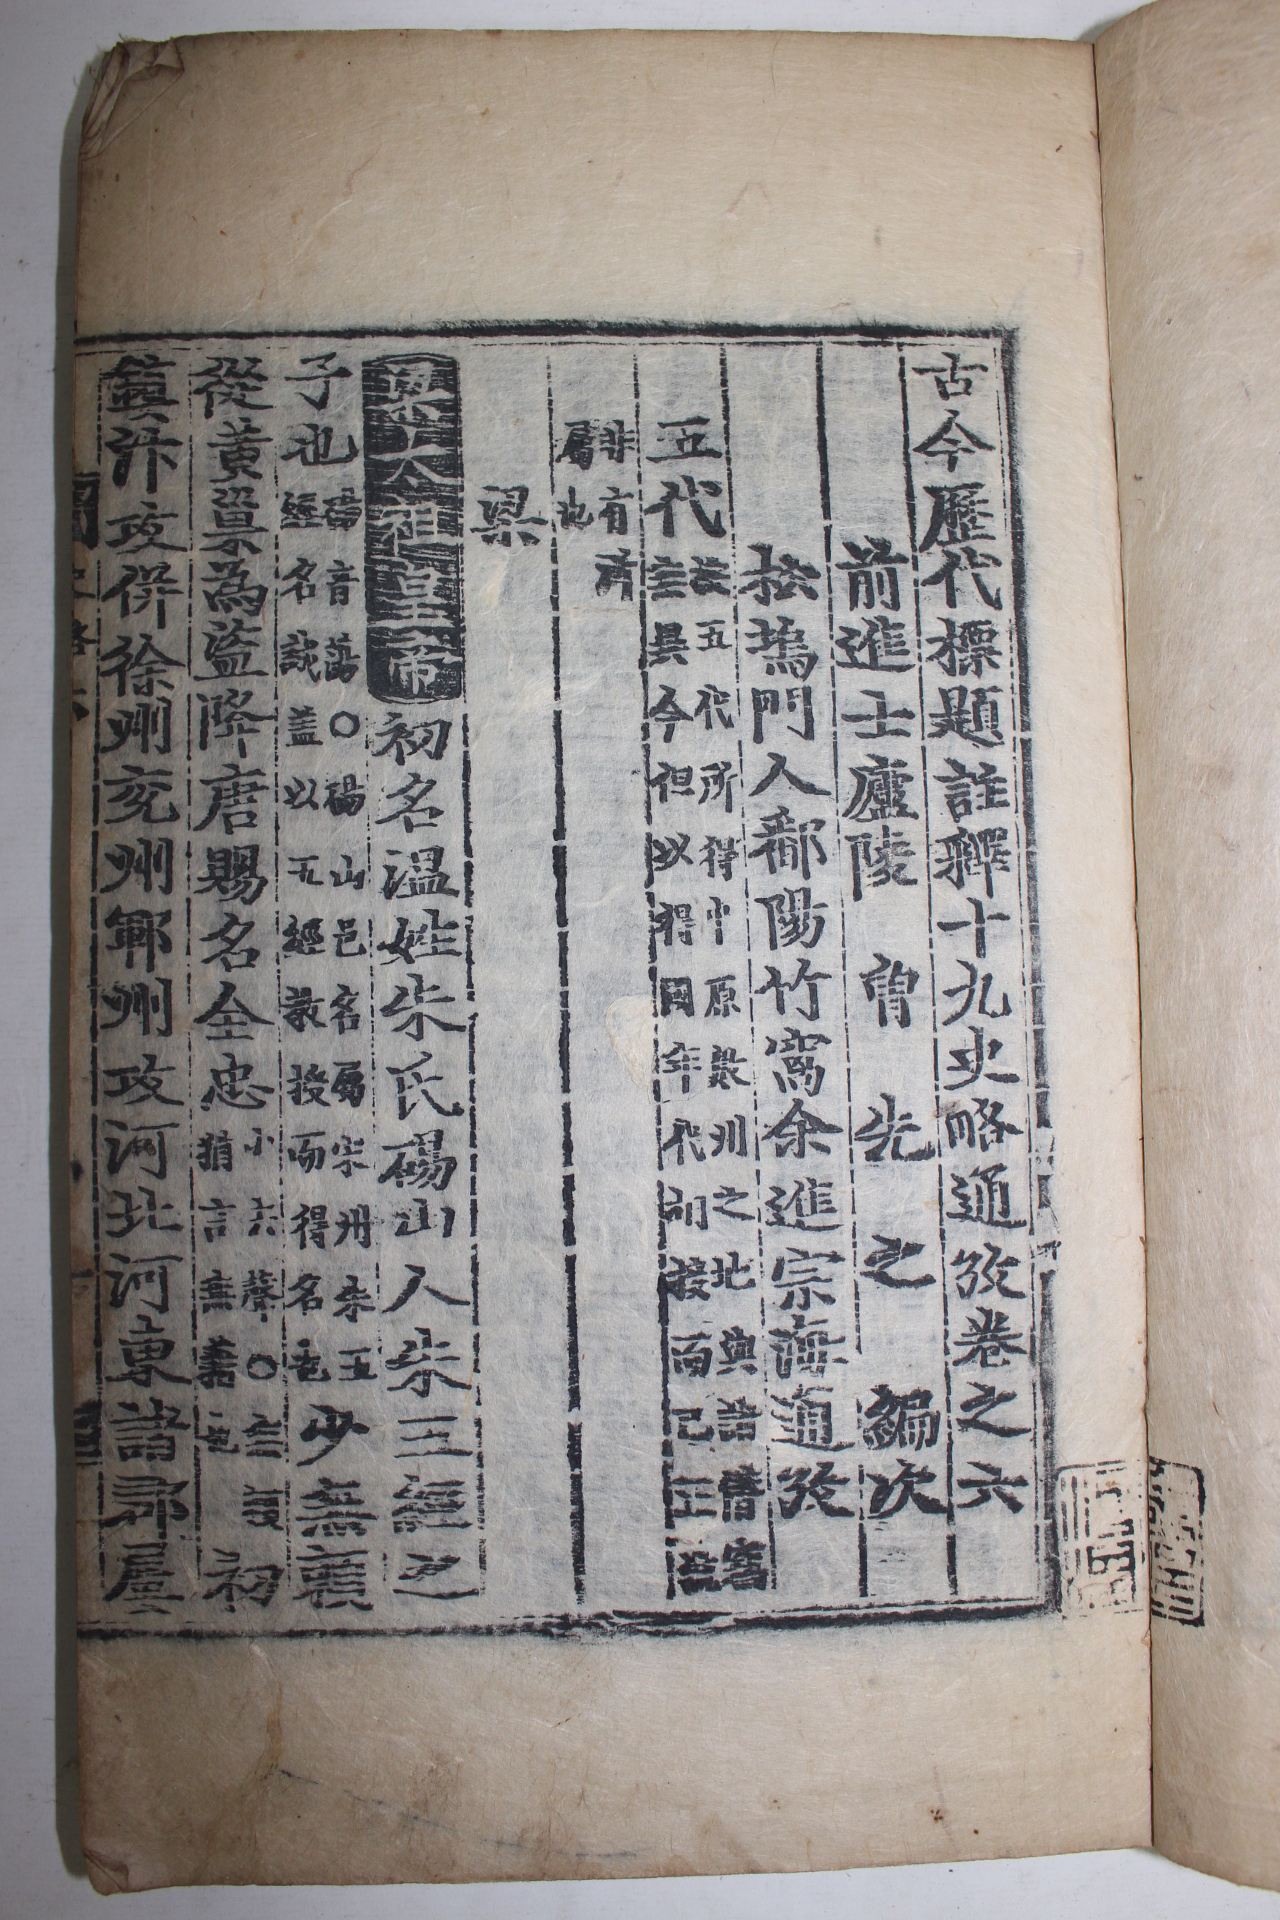 古今歷代標題註釋十九史略通攷卷之六
前進士廬陵 曾 先 之 編次
松塢門人鄱陽竹窩余進宗海通攷
五代
註五代所得中原數州之北與諸僭竊
異今但以得國年代
非有所
屬也
梁
梁太祖皇帝初名溫姓朱氏碭山人朱五經之
子也
碭音蕩○碭山邑名屬宋州朱五
經名誠蓋以五經敎授而得名也
少無賴
從黃巢爲盜降唐賜名全忠
猶言無
初
鎭汴攻倂徐州兗州鄆州攻河北河東諸郡屢